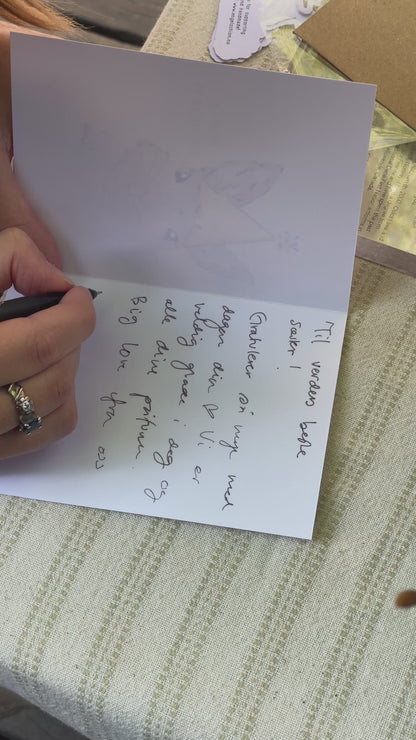 Til verdens beste
søster!
Gratulerer så mye med
dagen din ♡ Vi er
veldig glade i deg og
alle dine påfunn.
Big love fra oss
for supporting